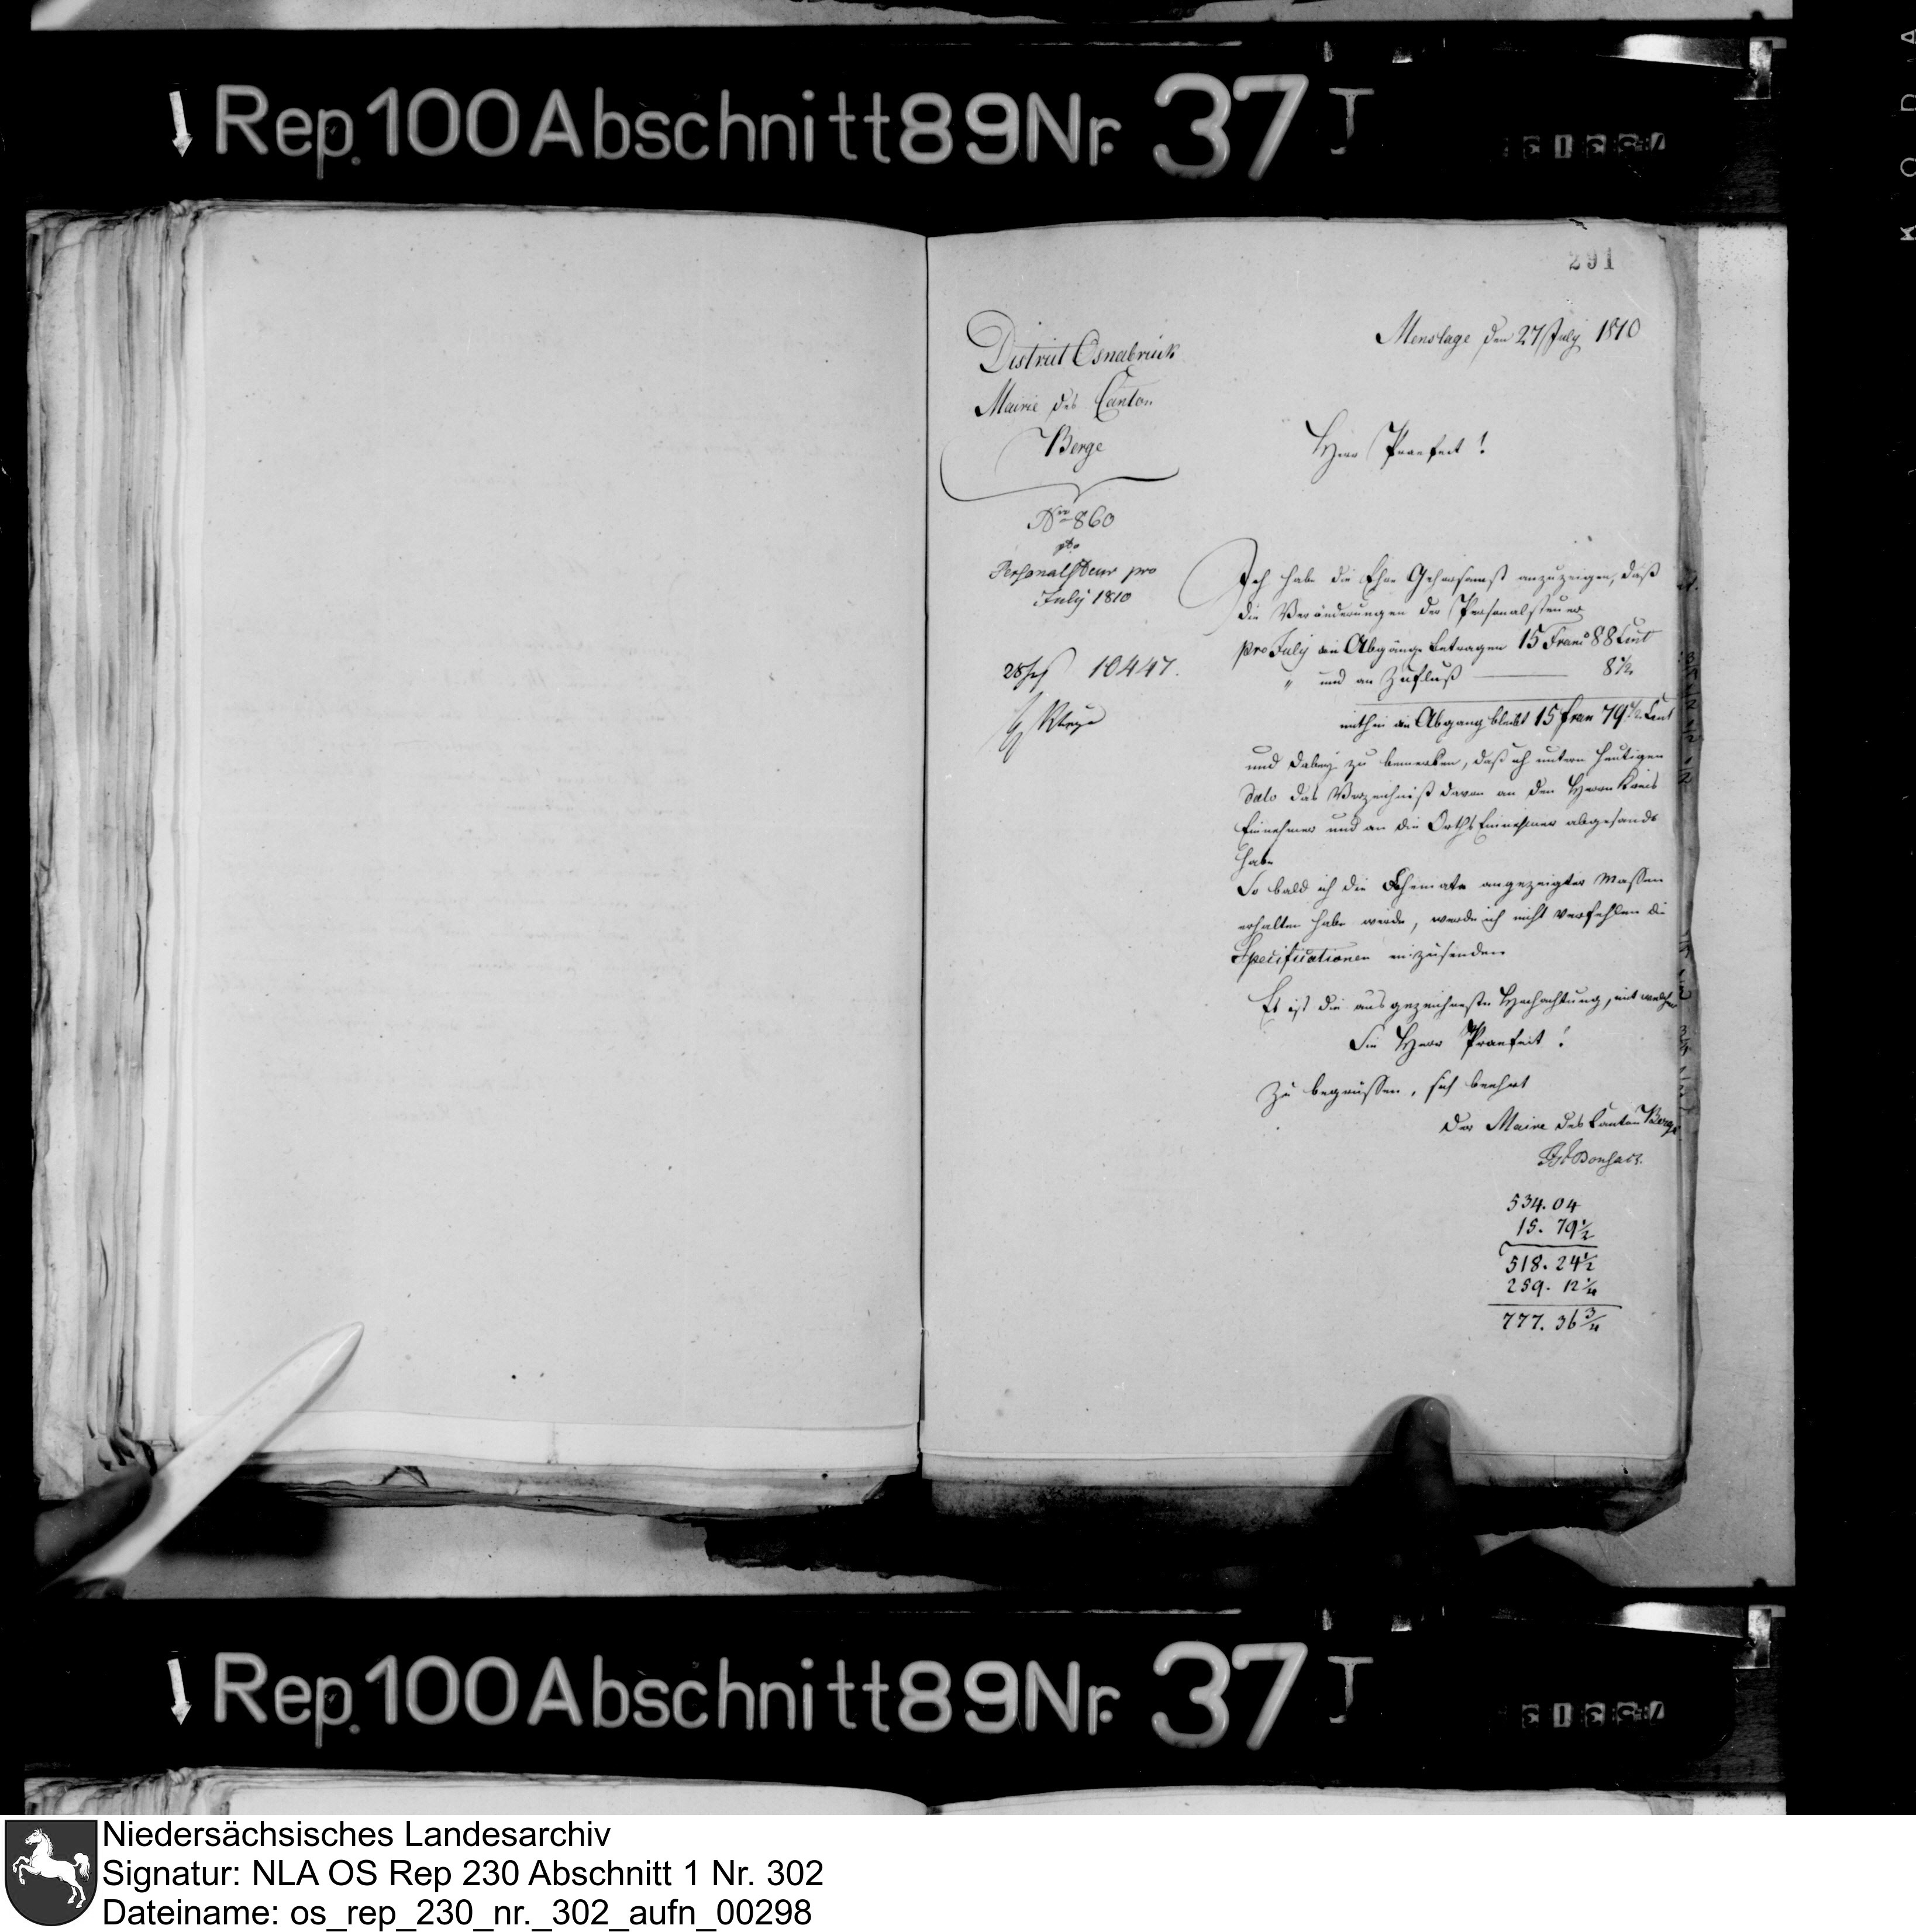 Rep. 100 Abschnitt 89 Nr. 37 I
291
Menslage den 27 July 1810
District Osnabrück
Mairie des Canton
Berge
Nro 860
pto
Personalsteuer pro
July 1810
10447.
Herr Praefect!
Ich habe die Ehre Gehorsamst anzuzeigen, daß
die Veränderungen der Personalsteuer
pro July an Abgänge betragen 15 Franc 88 Cent
" und an Zufluß 8½
mithin an Abgang bleibt 15 fran 79½ Cent
und dabey zu bemerken, daß ich untern heutigen
dato das Verzeichniß davon an den Herrn Kreis
Einnehmer und an die Orths Einnehmer abgesandt
habe
So bald ich die Schemata angezeigter Massen
erhalten habe werde, werde ich nicht verfehlen die
Specificationen einzusenden
Es ist die ausgezeichneste Hochachtung, mit welcher
Sie Herr Praefect!
Zu begrüssen, sich beehrt
Der Maire des Canton Berge
534.04
15. 79½
518. 24½
259. 12¼
777. 36¾
Rep. 100 Abschnitt 89 Nr. 37 I
Niedersächsisches Landesarchiv
Signatur: NLA OS Rep 230 Abschnitt 1 Nr. 302
Dateiname: os_rep_230_nr._302_aufn_00298